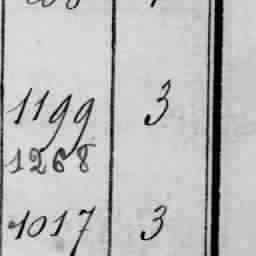 1199 3
1268
1017 3